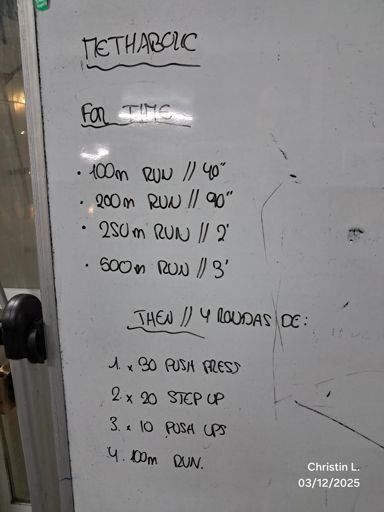 METHABOLIC
FOR TIME
• 100m RUN // 40"
• 200m RUN // 90"
• 250m RUN // 2'
• 500m RUN // 3'
THEN // 4 RONDAS DE:
1. x 30 PUSH PRESS
2. x 20 STEP UP
3. x 10 PUSH UPS
4. 100m RUN.
Christin L.
03/12/2025